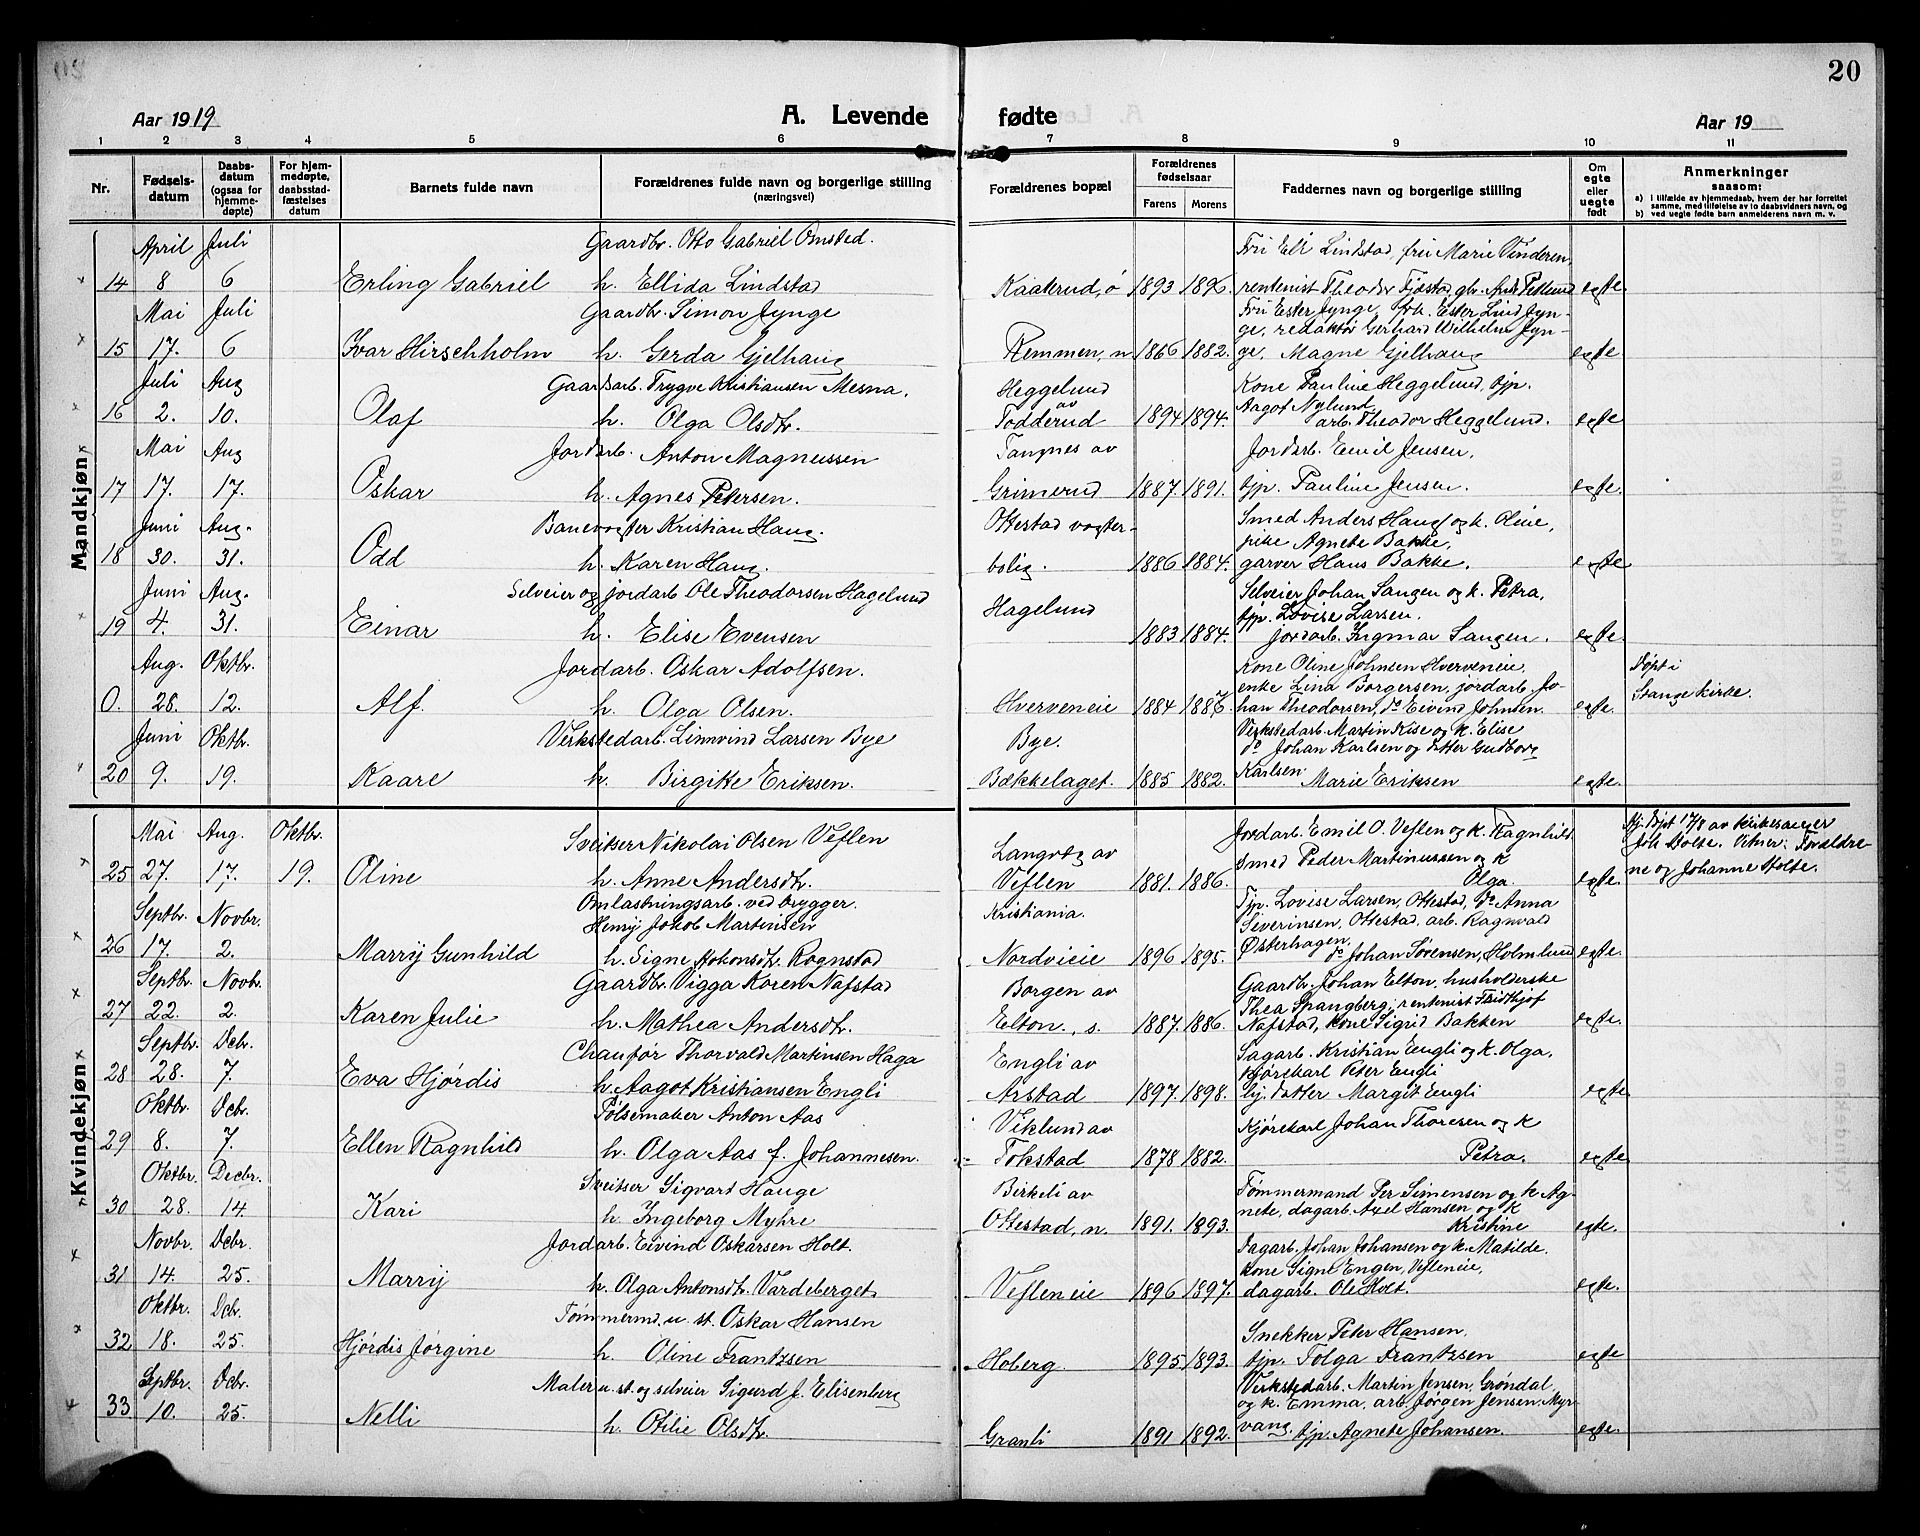 20
Aar 1919
A. Levende
fødte
Aar 19
1 2 3 4 5 6 7 8 9 10 11
Nr.
Fødsels-
datum
Daabs-
datum
(ogsaa for
hjemme-
døpte)
For hjem-
medøpte,
daabsstad-
fæstelses
datum
Barnets fulde navn
Forældrenes fulde navn og borgerlige stilling
(næringsvei)
Forældrenes bopæl
Forældrenes
fødselsaar
Farens Morens
Faddernes navn og borgerlige stilling
Om
egte
eller
uegte
født
Anmerkninger
saasom:
a) i tilfælde av hjemmedaab, hvem der har forrettet
samme, med tilføielse av to daabsvidners navn, og
b) ved uegte fødte barn anmelderens navn m. v.
Mandkjøn
April Juli Gaardbr. Otto Gabriel Omsted. Fru Elí Lindstad, fru Marie Vinderen,
14 8 6 Erling Gabriel h. Ellida Lindstad Kaaterud, ø 1893 1896. rentenist Theodor Fjøstad, gbr. Peklund egte.
Mai Juli Gaardbr. Simon Jynge Fru Ester Jynge, frk. Ester Lind Jyn-
ge, redaktør Gerhard Wilhelm Jyn-
15 17. 6 Ivar Hirschholm h. Gerda Gjelhaug Remmen, n. 1866 1882. ge, Magne Gjelhaug egte
Juli Aug Gaardarb. Trygve Kristiansen Mesna. Heggelund Kone Pauline Heggelund, tjp.
av Aagot Nylund
16 2. 10. Olaf h. Olga Olsdtr. Todderud 1894 1894. arb. Theodor Heggelund. egte
Mai Aug Jordarb. Anton Magnussen Tangnes av Jordarb. Emil Jensen,
17 17. 17. Oskar h. Agnes Petersen. Grimerud 1887. 1891. tjp. Pauline Jensen. egte.
Juni Aug. Banevogter Kristian Haug. Ottestad vogter- Smed Anders Haug og k. Oline,
pike Agnete Bakke,
18 30. 31. Odd h. Karen Haug. bolig. 1886 1884. garver Hans Bakke. egte
Juni Aug. Selveier og jordarb Ole Theodorsen Hagelund Hagelund Selveier Johan Sangen og k. Petra,
tjp. Lovise Larsen,
19 4. 31. Einar h. Elise Evensen 1883 1884. jordarb. Ingmar Sangen. egte.
Aug. Oktbr. Jordarb. Oskar Adolfsen. Kone Oline Johnsen Hverveneie, Døpt i
enke Lina Borgersen, jordarb. Jo- Stange kirke.
0. 28. 12. Alf. h. Olga Olsen. Hverveneie 1884 1886 han Theodorsen, do Eivind Johnsen. egte.
Juni Oktbr. Verkstedarb. Linnvind Larsen Bye Bye. Verkstedarb. Martin Kise og k. Elise
do Johan Karlsen og datter Gudborg
20 9. 19. Kaare h. Birgitte Eriksen. Bækkelaget. 1885 1882. Karlsen. Marie Eriksen egte.
Kvindekjøn
Mai Aug. Oktbr. Sveitser Nikolai Olsen Veflen Langvtg av Jordarb. Emil O. Veflen og k. Ragnhild Hj. døpt 17/8 av kirkesanger
Smed Peder Martinussen og k Joh Holte. Vitner: Forældre-
25 27. 17. 19. Oline h. Anne Andersdtr. Veflen 1881. 1886. Olga. egte. ne og Johanne Holte.
Septbr. Novbr. Omlastningsarb. ved brygger. Kristiania. Tjp. Lovise Larsen, Ottestad, do Anna
Henry Jakob Martinsen Severinsen, Ottestad, arb. Ragnvald
26 17. 2. Marry Gunhild h. Signe Johansdtr. Rognstad Nordvieie 1896 1895. Østerhagen, do Johan Sørensen, Holmlund egte.
Septbr. Novbr. Gaardbr. Vigga Koren Nafstad Borgen av Gaardbr. Johan Elton, husholderske
Thea Spangberg, rentenist Fridthjof
27 22. 2. Karen Julie h. Mathea Andersdtr. Elton, s. 1887. 1886. Nafstad, kone Sigrid Bakken egte.
Septbr. Dcbr. Chaufør Thorvald Martinsen Haga Engli av Sagarb. Kristian Engli og k. Olga,
kjørekarl Peter Engli
28 28. 7. Eva Hjørdis h. Aagot Kristiansen Engli Arstad 1897. 1898. hj. datter Margit Engli egte.
Oktbr. Dcbr. Pølsemaker Anton Aas Viklund av Kjørekarl Johan Thoresen og k
29 8. 7. Ellen Ragnhild h. Olga Aas f. Johannesen. Tokstad 1878 1882. Petra. egte
Oktbr. Decbr. Sveitser Sigvart Hauge Birkeli av Tømmermand Per Simensen og k. Ag-
nete, dagarb. Axel Hansen og k
30 28. 14. Kari h. Ingeborg Myhre Ottestad, n. 1891. 1893. Kristine egte.
Novbr. Dcbr. Jordarb. Eivind Oskarsen Holt. Dagarb. Johan Johansen og k. Matilde,
kone Signe Engen, Vefleneie,
31 14. 25. Marry h. Olga Antonsdtr. Vardeberget Vefleneie 1896 1897. dagarb. Ole Holt. egte.
Oktbr. Dcbr. Tømmermd. u. st. Oskar Hansen Snekker Peter Hansen,
32 18. 25. Hjørdis Jørgine h. Oline Frantzsen Hoberg. 1895 1893. tjp. Tolga Frantzsen egte
Septbr. Dcbr. Maler u. st. og selveier Sigurd J. Elisenberg Verkstedarb. Martin Jensen, Grøndal,
og k. Emma, arb. Jørgen Jensen. Myr-
33 10. 25. Nelli h. Otilie Olsdtr. Granli 1891 1892. vang. tjp. Agnete Johansen. egte.